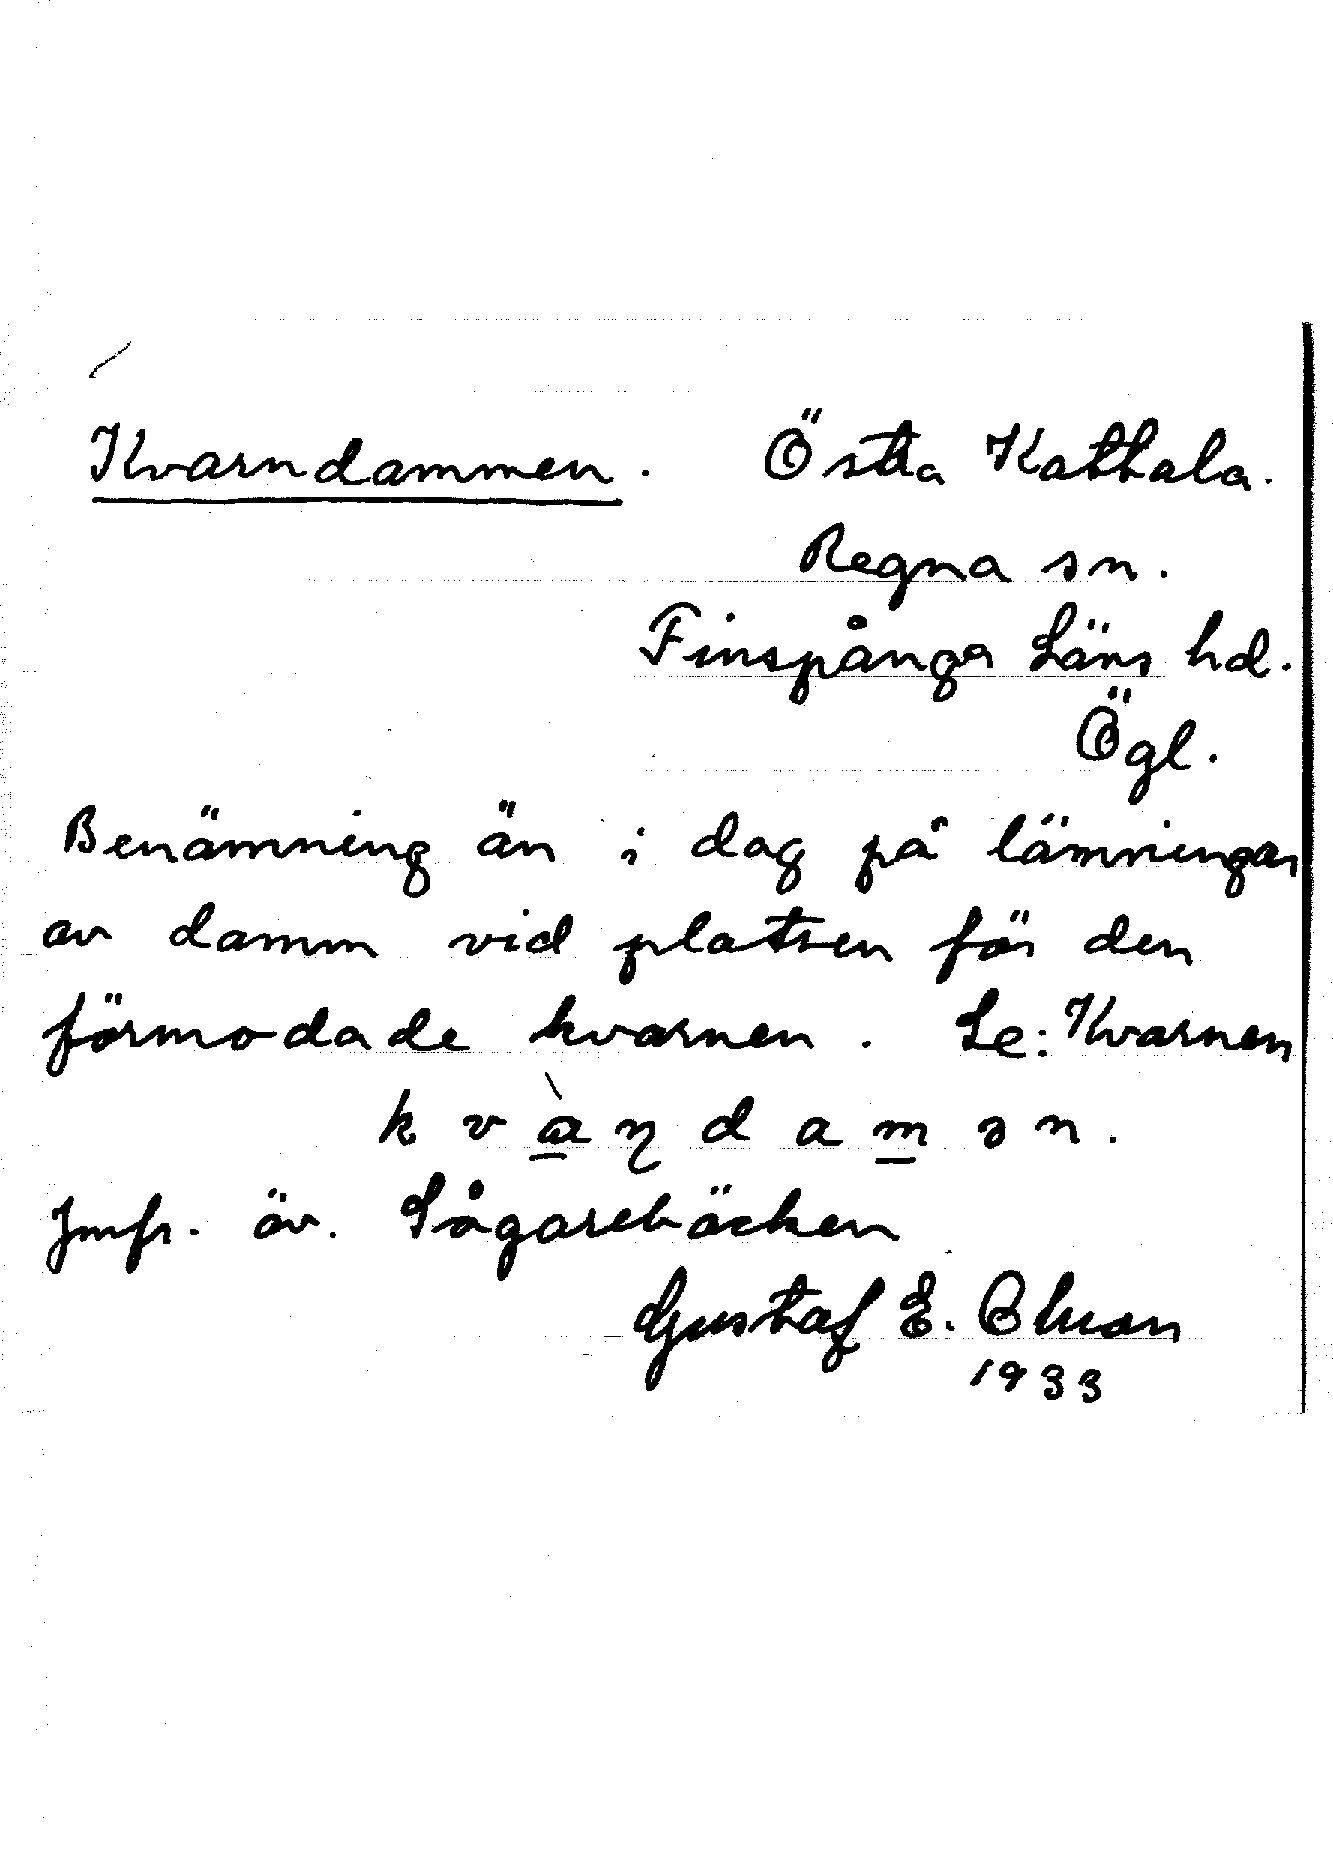 Kvarndammen. Östra Kathala.
Regna sn.
Finspånga Läns hd.
Ögl.
Benämning än i dag på lämningar
av damm vid platsen för den
förmodade kvarnen. Se: Kvarnen
k v à ɳ d a m ə n.
Jmfr. äv. Sågarebäcken
Gustaf E.
1933